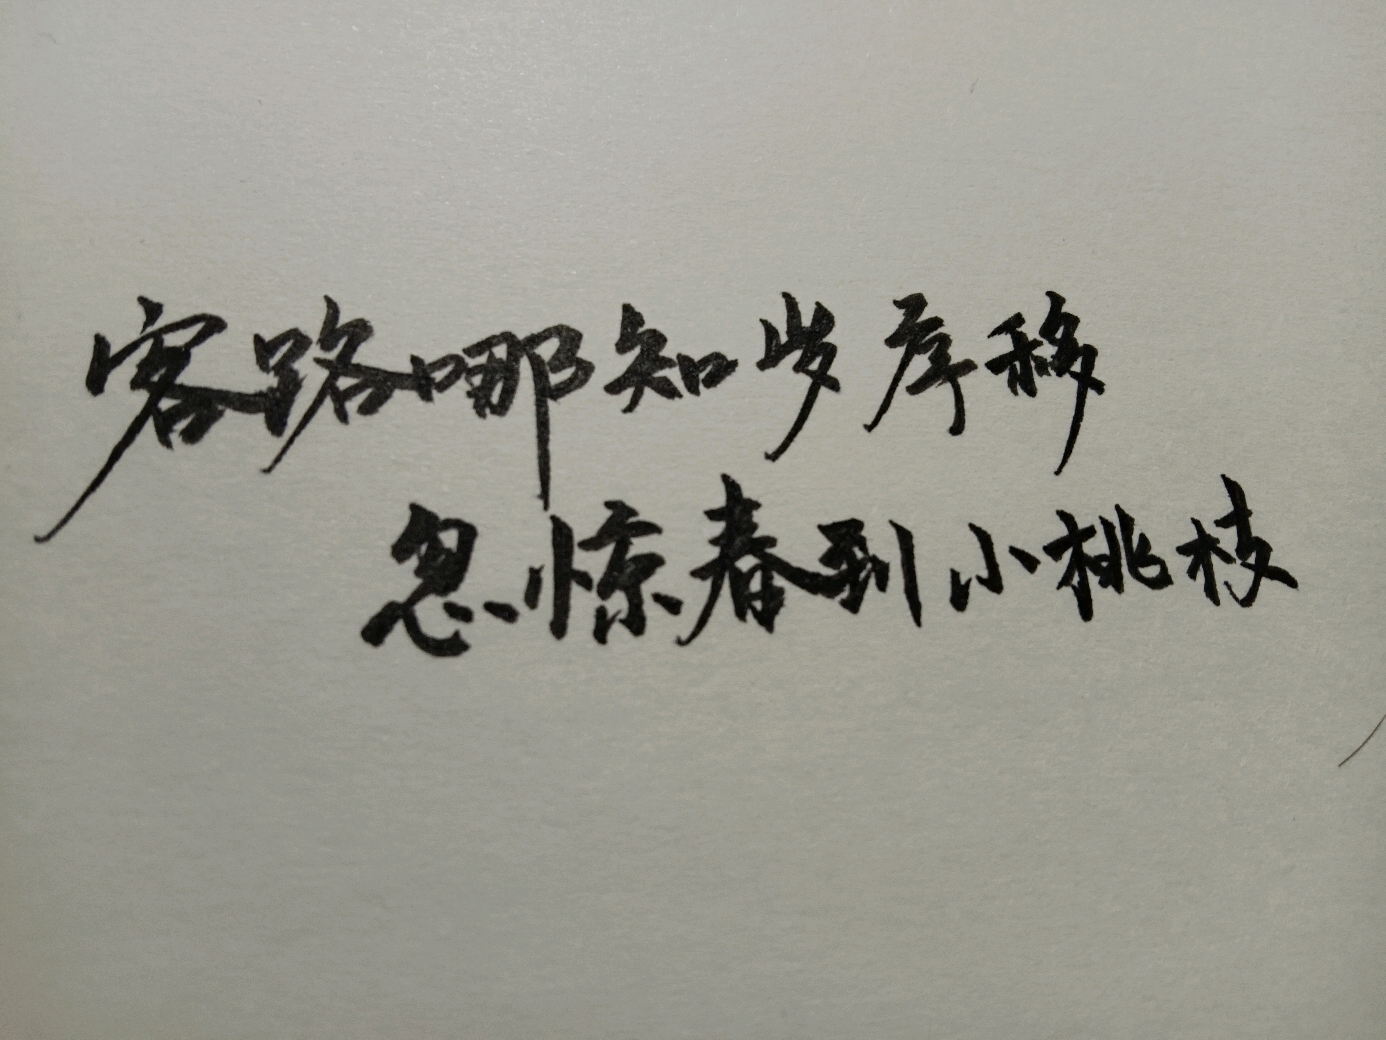 客路哪知岁序移
忽惊春到小桃枝